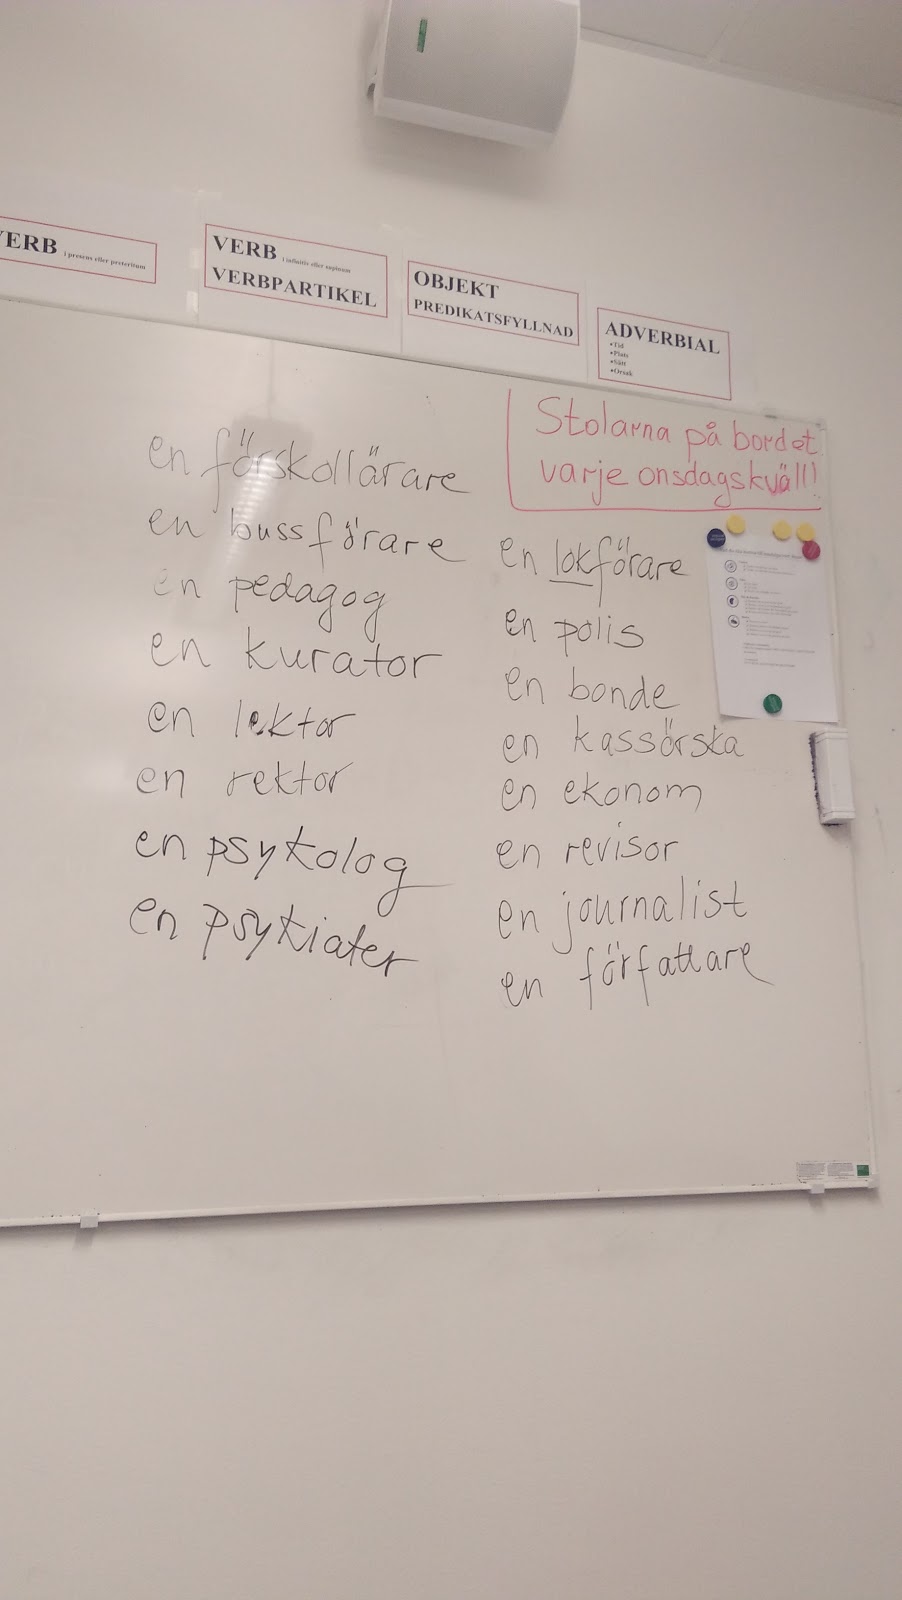 VERB i presens eller preteritum
VERB i infinitiv eller supinum
VERBPARTIKEL
OBJEKT
PREDIKATSFYLLNAD
ADVERBIAL
•Tid
•Plats
•Sätt
•Orsak
Stolarna på bordet
varje onsdagskväll!
en förskollärare
en bussförare
en pedagog
en kurator
en lektor
en rektor
en psykolog
en psykiater
en lokförare
en polis
en bonde
en kassörska
en ekonom
en revisor
en journalist
en författare